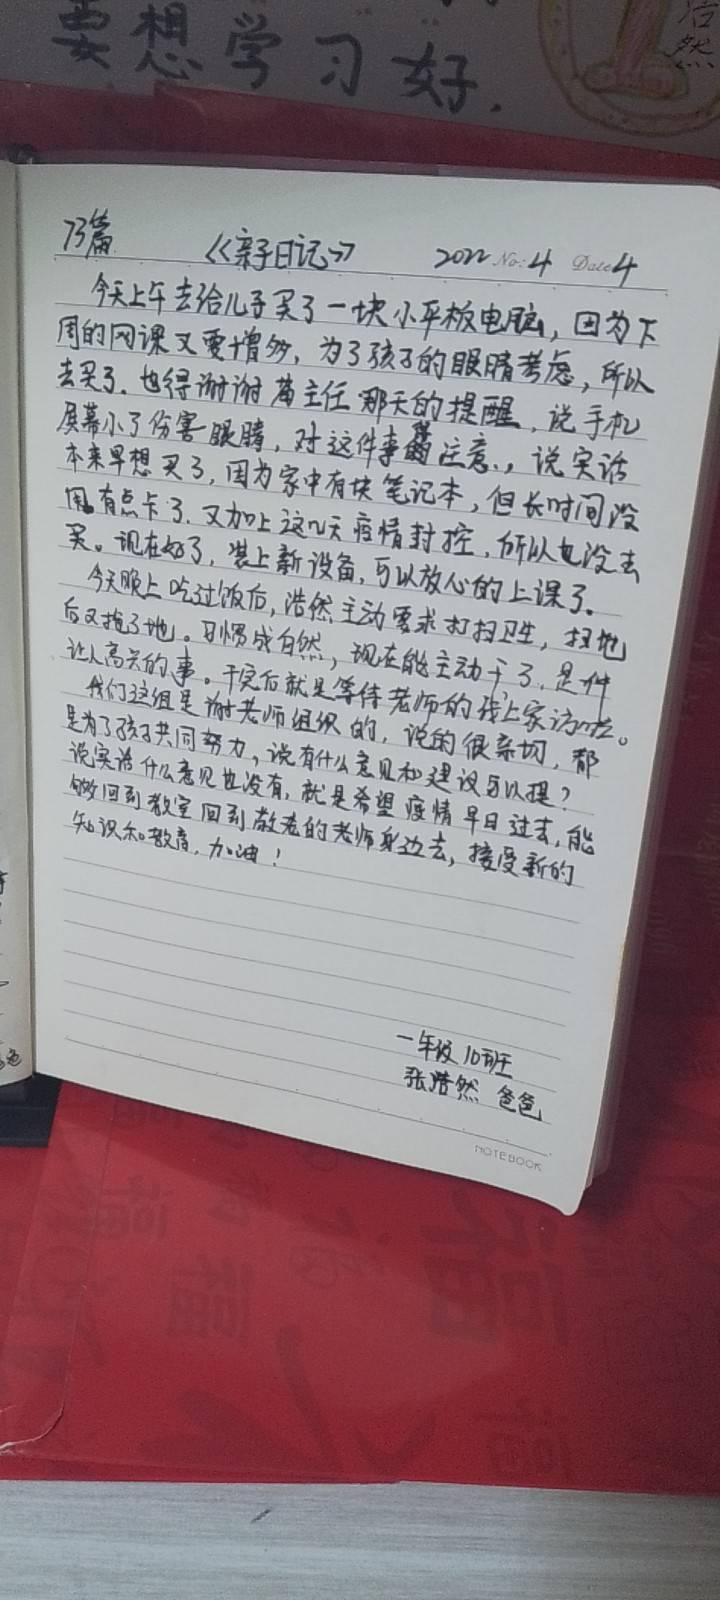 要想学习好.
浩
然
73篇 《亲子日记》 2022 No: 4 Date 4
今天上午去给儿子买了一块小平板电脑，因为下
周的网课又要增多，为了孩子的眼睛考虑，所以
去买了. 也得谢谢苗主任那天的提醒，说手机
屏幕小了伤害眼睛，对这件事 注意.，说实话
本来早想买了，因为家中有块笔记本，但长时间没
用有点卡了. 又加上这几天疫情封控，所以也没去
买。现在好了，装上新设备，可以放心的上课了。
今天晚上吃过饭后，浩然主动要求打扫卫生，扫地
后又拖了地。习惯成自然，现在能主动干了，是件
让人高兴的事。干完后就是等待老师的线上家访啦。
我们这组是谢老师组织的，说的很亲切，都
是为了孩子共同努力，说有什么意见和建议可以提？
说实话什么意见也没有，就是希望疫情早日过去，能
够回到教室回到敬老的老师身边去，接受新的
知识和教育，加油！
一年级10班
张浩然 爸爸
NOTEBOOK
福
福
福
福